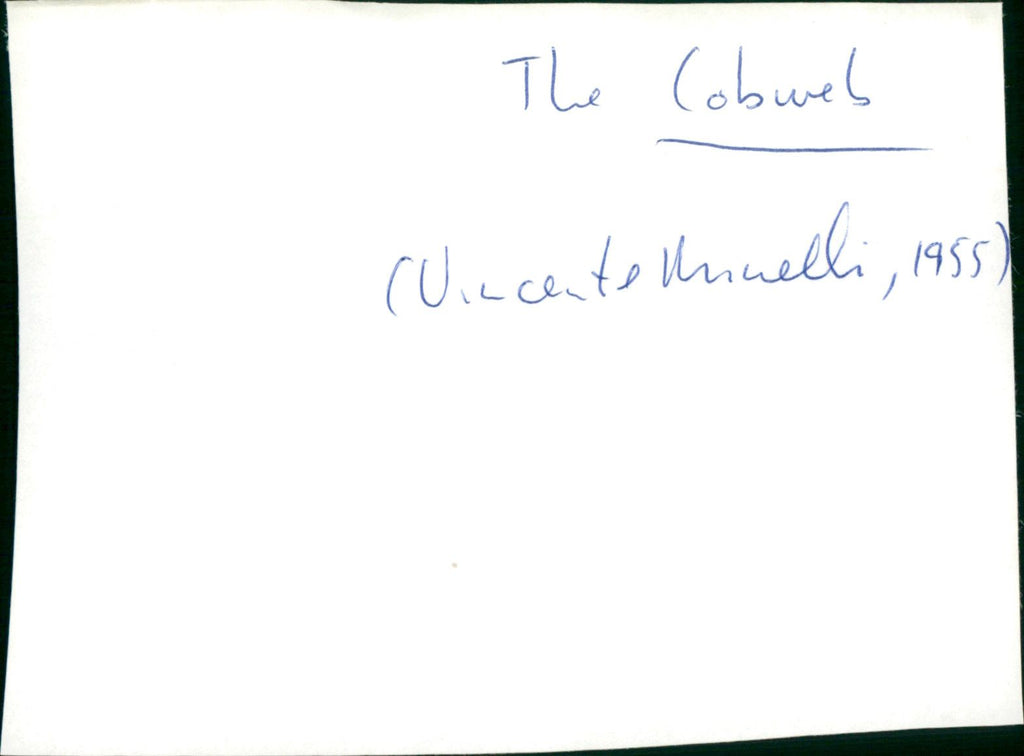 The Cobweb
(Vincente Minnelli, 1955)